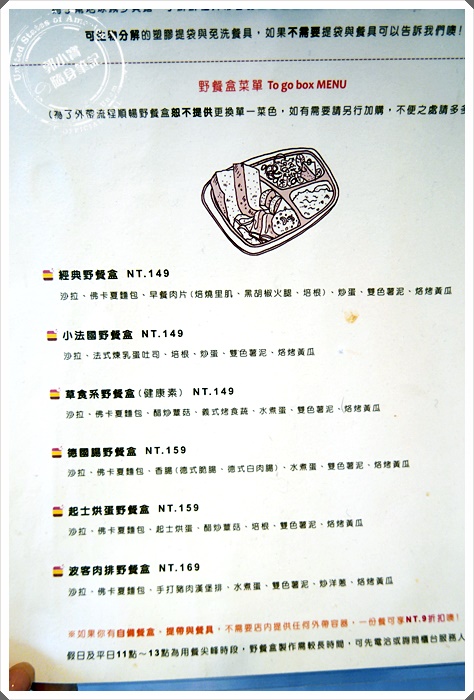 United States of America
可生物分解的塑膠提袋與免洗餐具，如果不需要提袋與餐具可以告訴我們噢!
野餐盒菜單 To go box MENU
(為了外帶流程順暢野餐盒恕不提供更換單一菜色，如有需要請另行加購，不便之處請多
經典野餐盒 NT.149
沙拉、佛卡夏麵包、早餐肉片(焙燒里肌、黑胡椒火腿、培根)、炒蛋、雙色薯泥、烙烤黃瓜
小法國野餐盒 NT.149
沙拉、法式煉乳蛋吐司、培根、炒蛋、雙色薯泥、烙烤黃瓜
草食系野餐盒(健康素) NT.149
沙拉、佛卡夏麵包、醋炒蕈菇、義式烤食蔬、水煮蛋、雙色薯泥、烙烤黃瓜
德國腸野餐盒 NT.159
沙拉、佛卡夏麵包、香腸(德式脆腸、德式白肉腸)、水煮蛋、雙色薯泥、烙烤黃瓜
起士烘蛋野餐盒 NT.159
沙拉、佛卡夏麵包、起士烘蛋、醋炒蕈菇、培根、雙色薯泥、烙烤黃瓜
波客肉排野餐盒 NT.169
沙拉、佛卡夏麵包、手打豬肉漢堡排、水煮蛋、雙色薯泥、炒洋蔥、烙烤黃瓜
※如果你有自備餐盒、提帶與餐具，不需要店內提供任何外帶容器，一份餐可享NT.9折扣噢!
假日及平日11點～13點為用餐尖峰時段，野餐盒製作需較長時間，可先電洽或詢問櫃台服務人